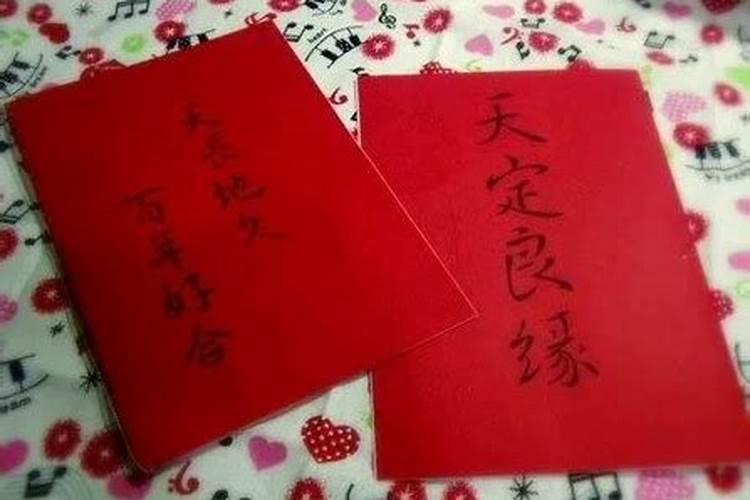 天長地久
百年好合
天定良缘